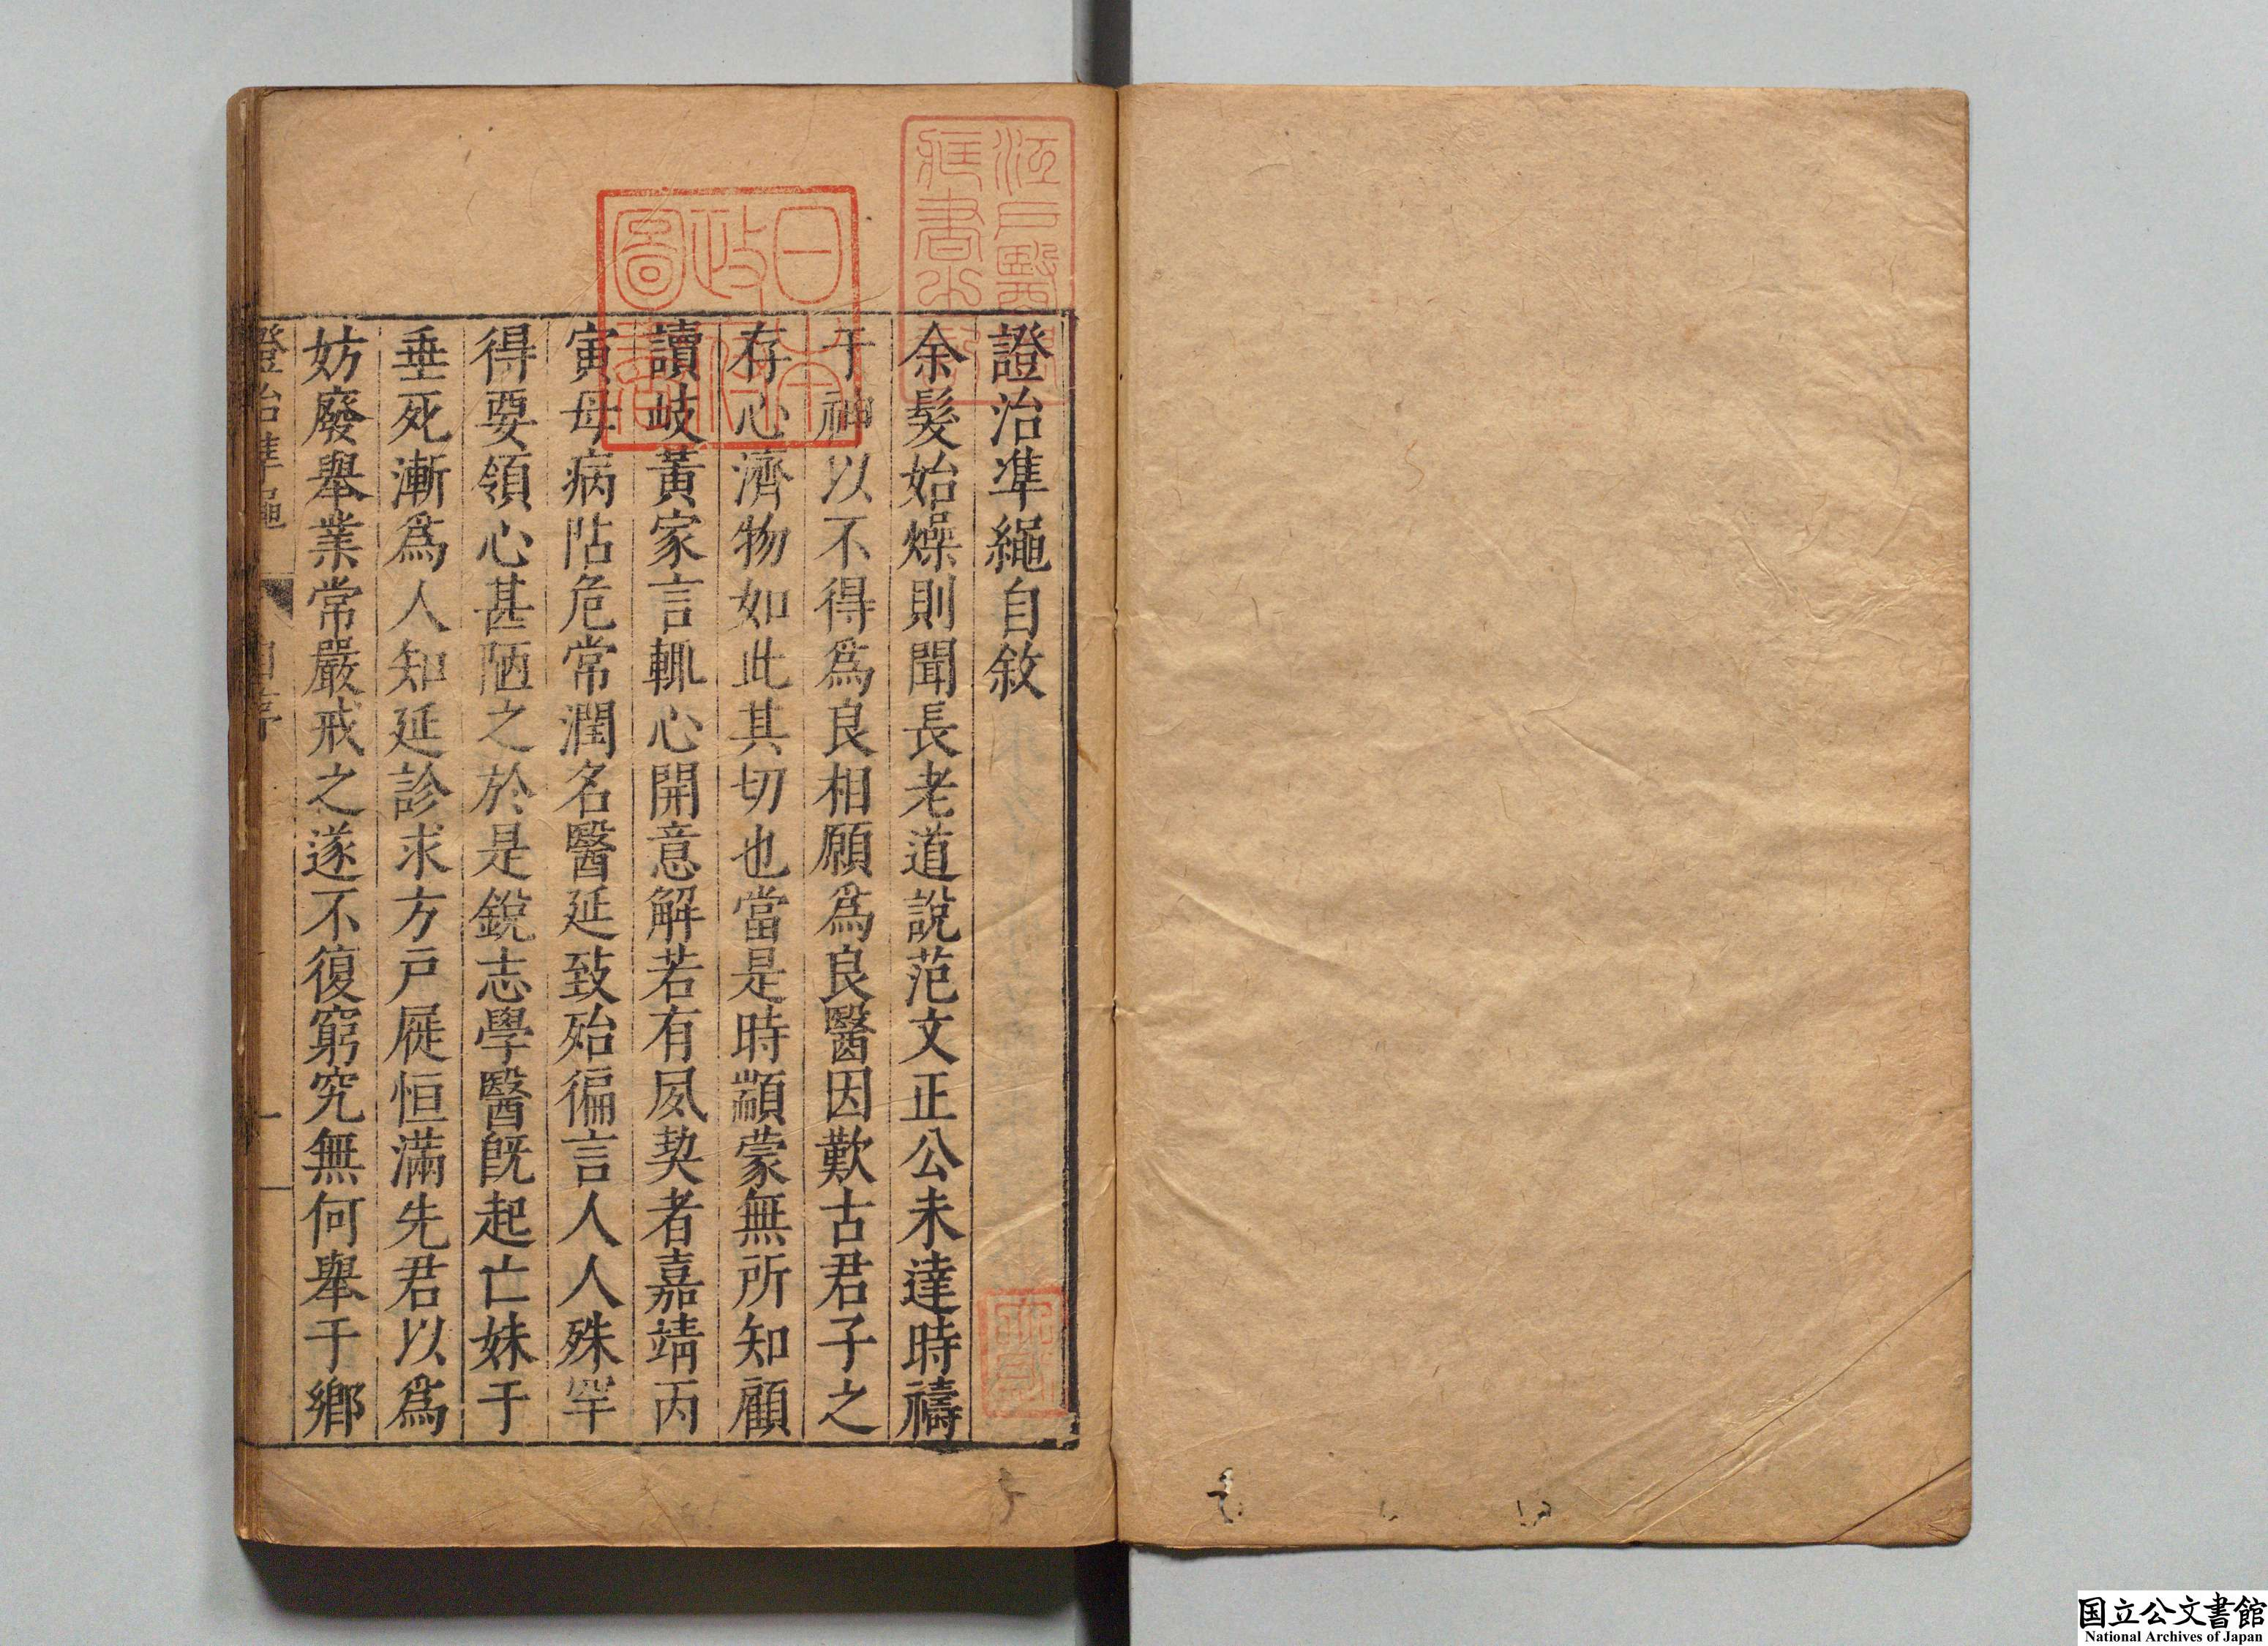 證治準繩自敘
余髮始燥則聞長老道說范文正公未達時禱
于神以不得爲良相願爲良醫因歎古君子之
存心濟物如此其切也當是時顓蒙無所知顧
讀岐黃家言輒心開意解若有夙契者嘉靖丙
寅母病阽危常潤名醫延致殆徧言人人殊罕
得要領心甚陋之於是銳志學醫旣起亡妹于
垂死漸爲人知延診求方戶屣恒滿先君以爲
妨廢舉業常嚴戒之遂不復窮究無何舉于鄉
證治準繩 自序 一
江戶醫學
藏書之記
日本
政府
圖書
国立公文書館
National Archives of Japan